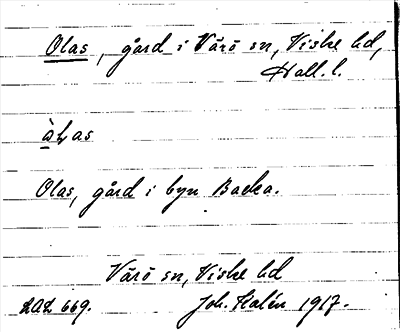 Olas, gård i Värö sn, Viske hd,
Hall. l.
Olas, gård i byn Backa.
Värö sn, Viske hd
LAL 669.
Joh. Kalén 1917.